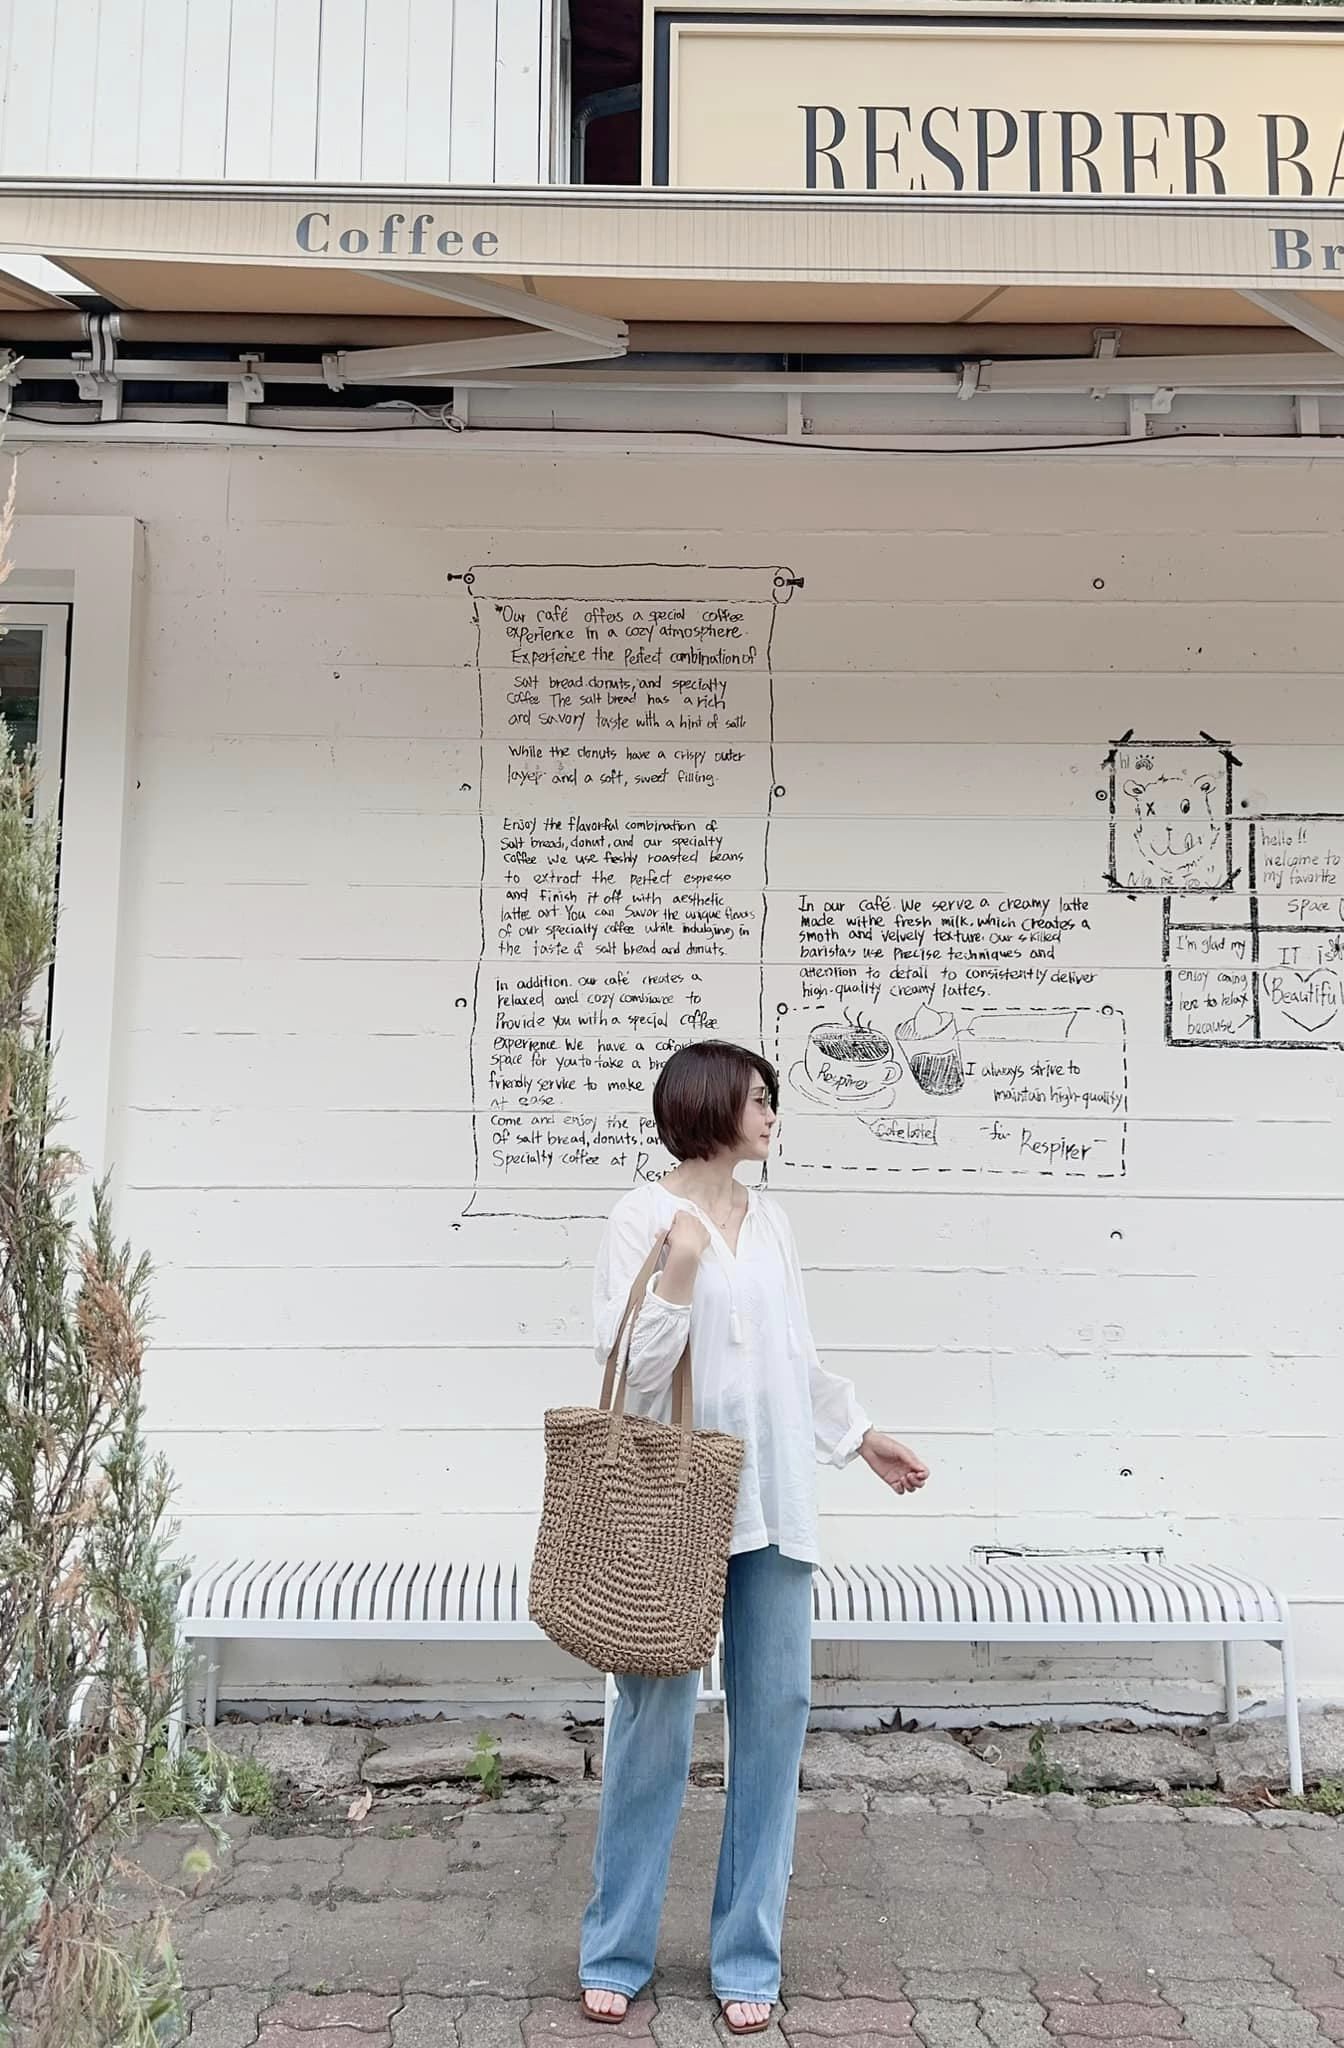 RESPIRER BA
Coffee
Br
"Our café offers a special coffee
experience in a cozy atmosphere.
Experience the Perfect combination of
Salt bread.donuts, and specialty
Coffee The salt bread has a rich
and savory taste with a hint of salt
While the donuts have a crispy outer
layer and a soft, sweet filling.
Enjoy the flavorful combination of
Salt bread, donut, and our specialty
coffee we use freshly roasted beans
to extract the perfect espresso
and finish it off with aesthetic
latte art. You can Savor the unique flavors
of our specialty coffee while indulging in
the taste of salt bread and donuts.
In addition. our café creates a
relaxed and cozy
Provide you with a special coffee
experience We have a
space for you to take a
friendly service to make
At ease.
Come and enjoy the per
Of salt bread, donuts, an
Specialty coffee at Respi
In our café. We serve a creamy latte
made withe fresh milk. which creates a
smoth and velvety texture. Our skilled
baristas use Precise techniques and
attention to detail to consistently deliver
high-quality creamy lattes.
Respirer
I always strive to
maintain high-quality
Cafe latte
Respirer
hi
hello!!
Welcome to
my favorite
space
I'm glad my
enjoy coming
here to relax
because
IT is
Beautiful